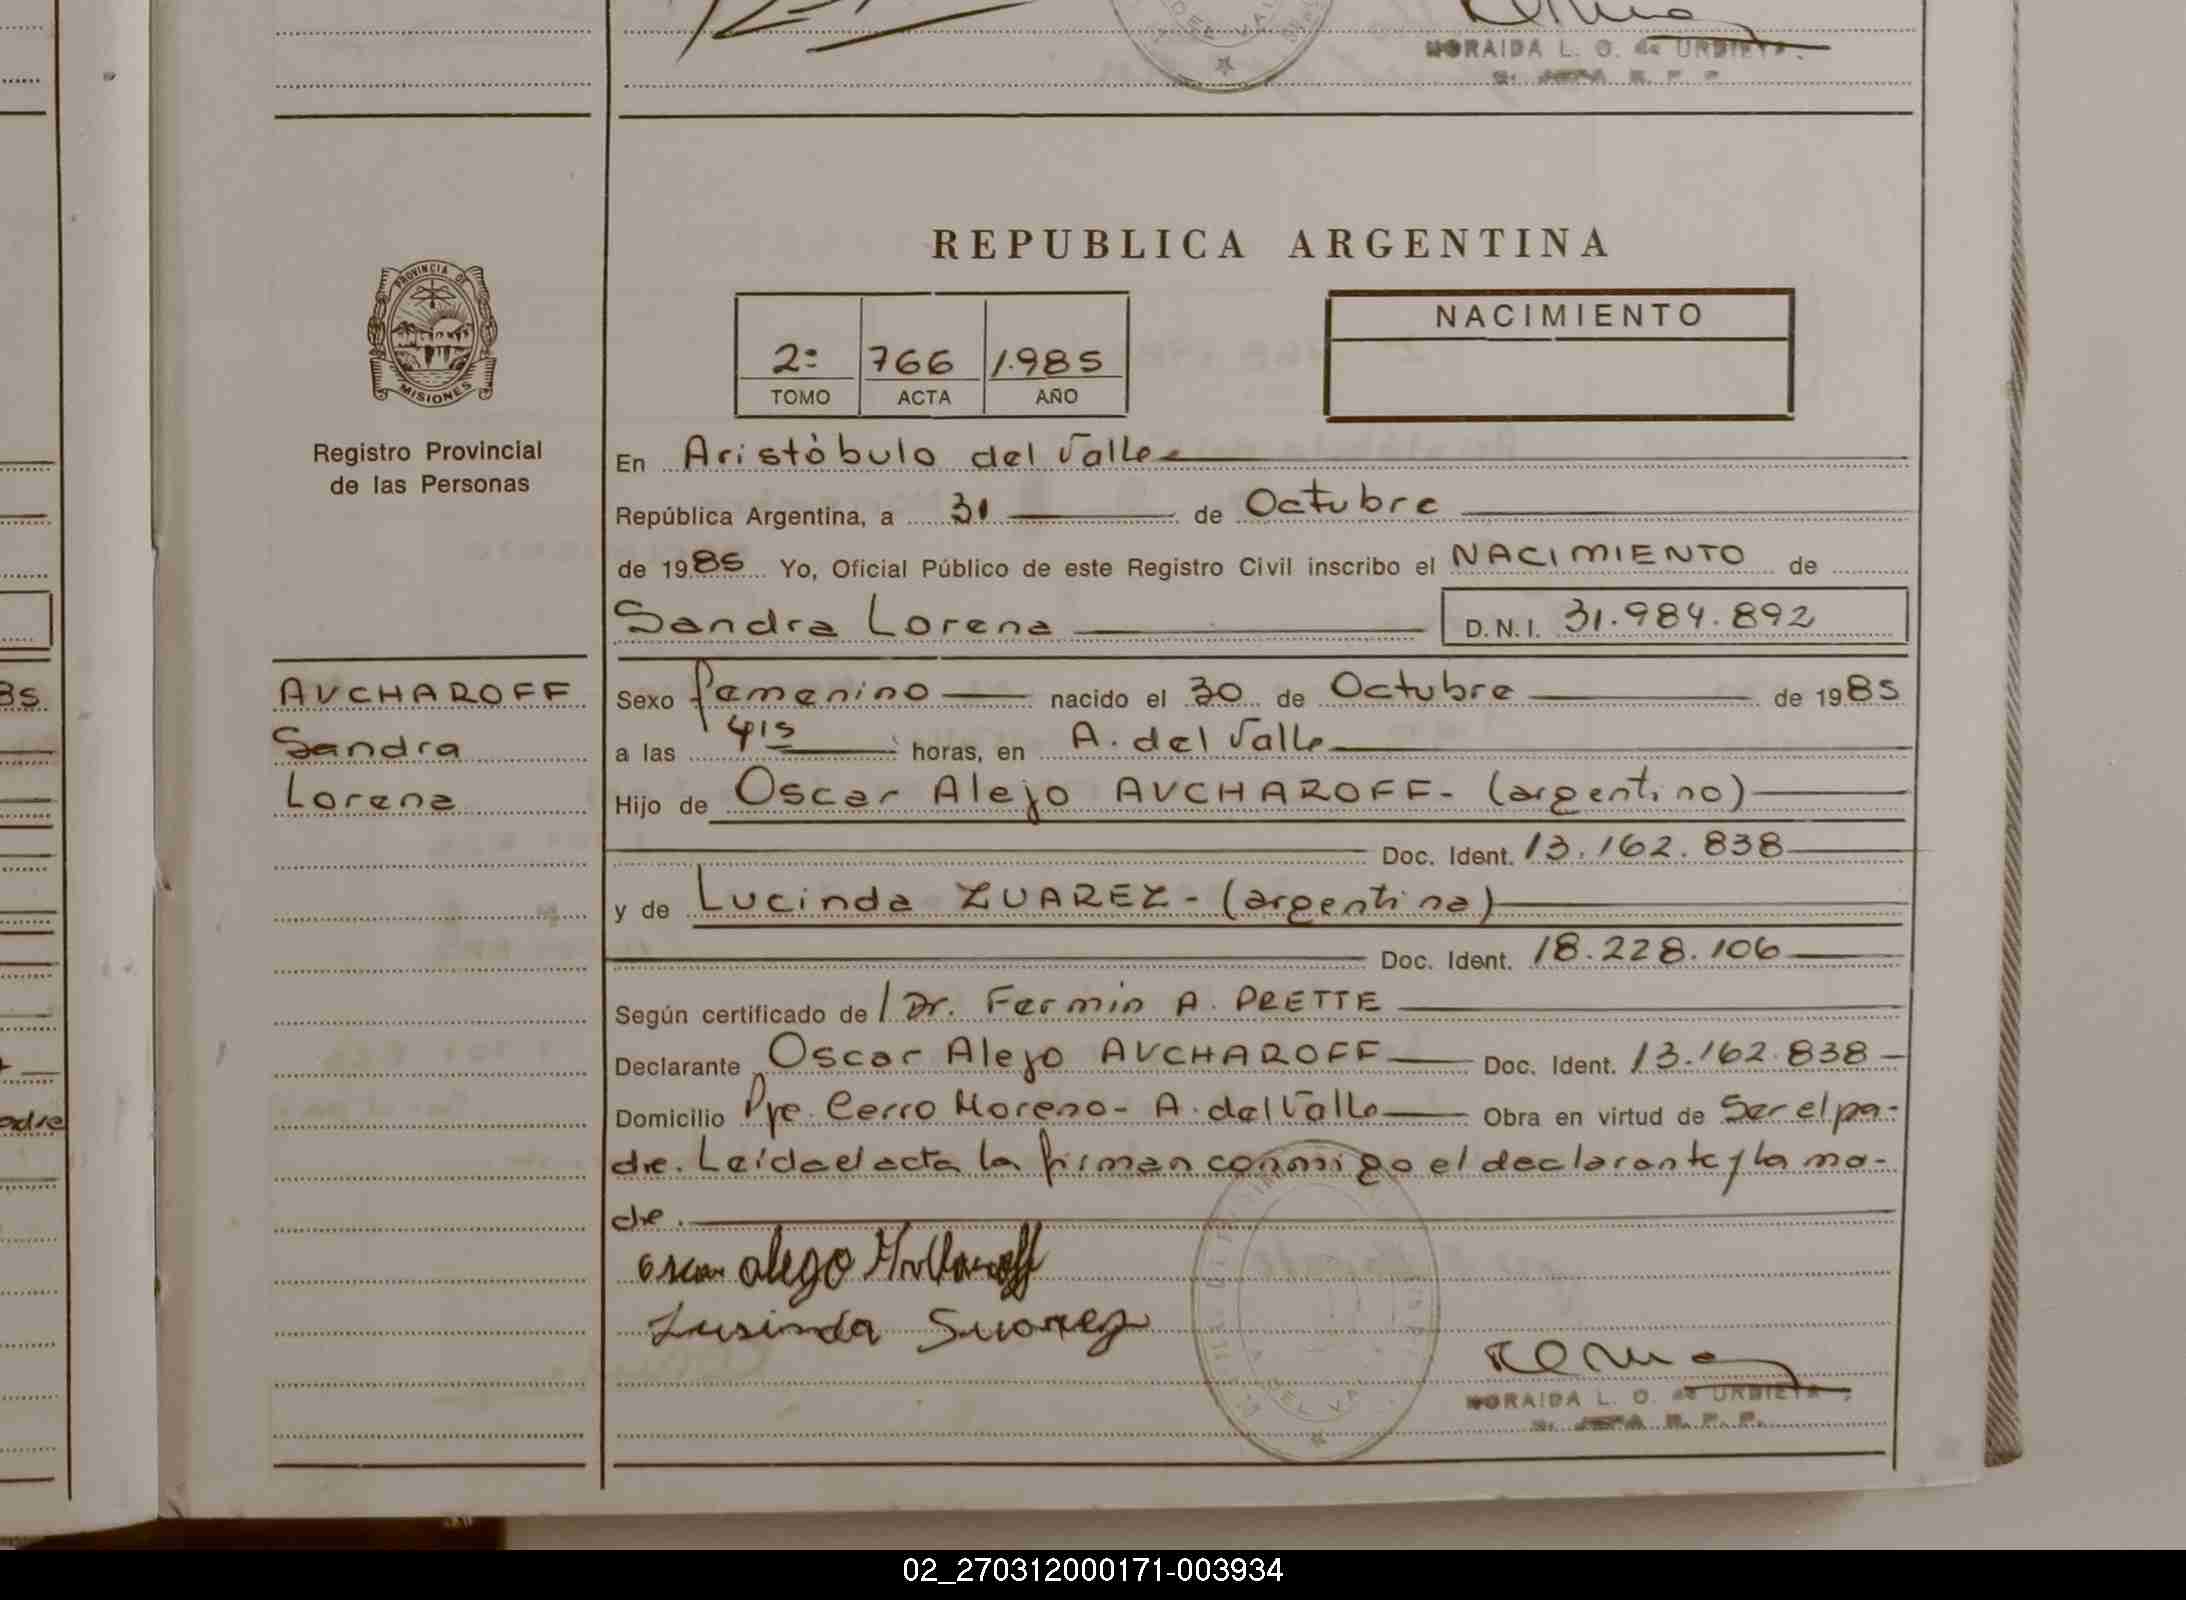 NORAIDA L. O. de URBIETA
REPUBLICA ARGENTINA
PROVINCIA DE
MISIONES
NACIMIENTO
2: 766 1.985
TOMO ACTA AÑO
Registro Provincial
de las Personas
En Aristóbulo del Valle
República Argentina, a 31 de Octubre
de 1985 Yo, Oficial Público de este Registro Civil inscribo el NACIMIENTO de
Sandra Lorena D.N.I. 31.984.892
AVCHAROFF
Sandra
Lorena
Sexo femenino nacido el 30 de Octubre de 1985
a las 4,15 horas, en A. del Valle
Hijo de Oscar Alejo AVCHAROFF- (argentino)
Doc. Ident. 13.162.838
y de Lucinda ZUAREZ - (argentina)
Doc. Ident. 18.228.106
Según certificado de / Dr. Fermin A. PRETTE
Declarante Oscar Alejo AVCHAROFF Doc. Ident. 13.162.838
Domicilio Pje. Cerro Moreno- A. del Valle Obra en virtud de Ser el pa-
dre. Leída el acta la firman conmigo el declarante y la ma-
dre.
oscar alego
Lusinda Suarez
NORAIDA L. O. de URBIETA
85
adre
02_270312000171-003934